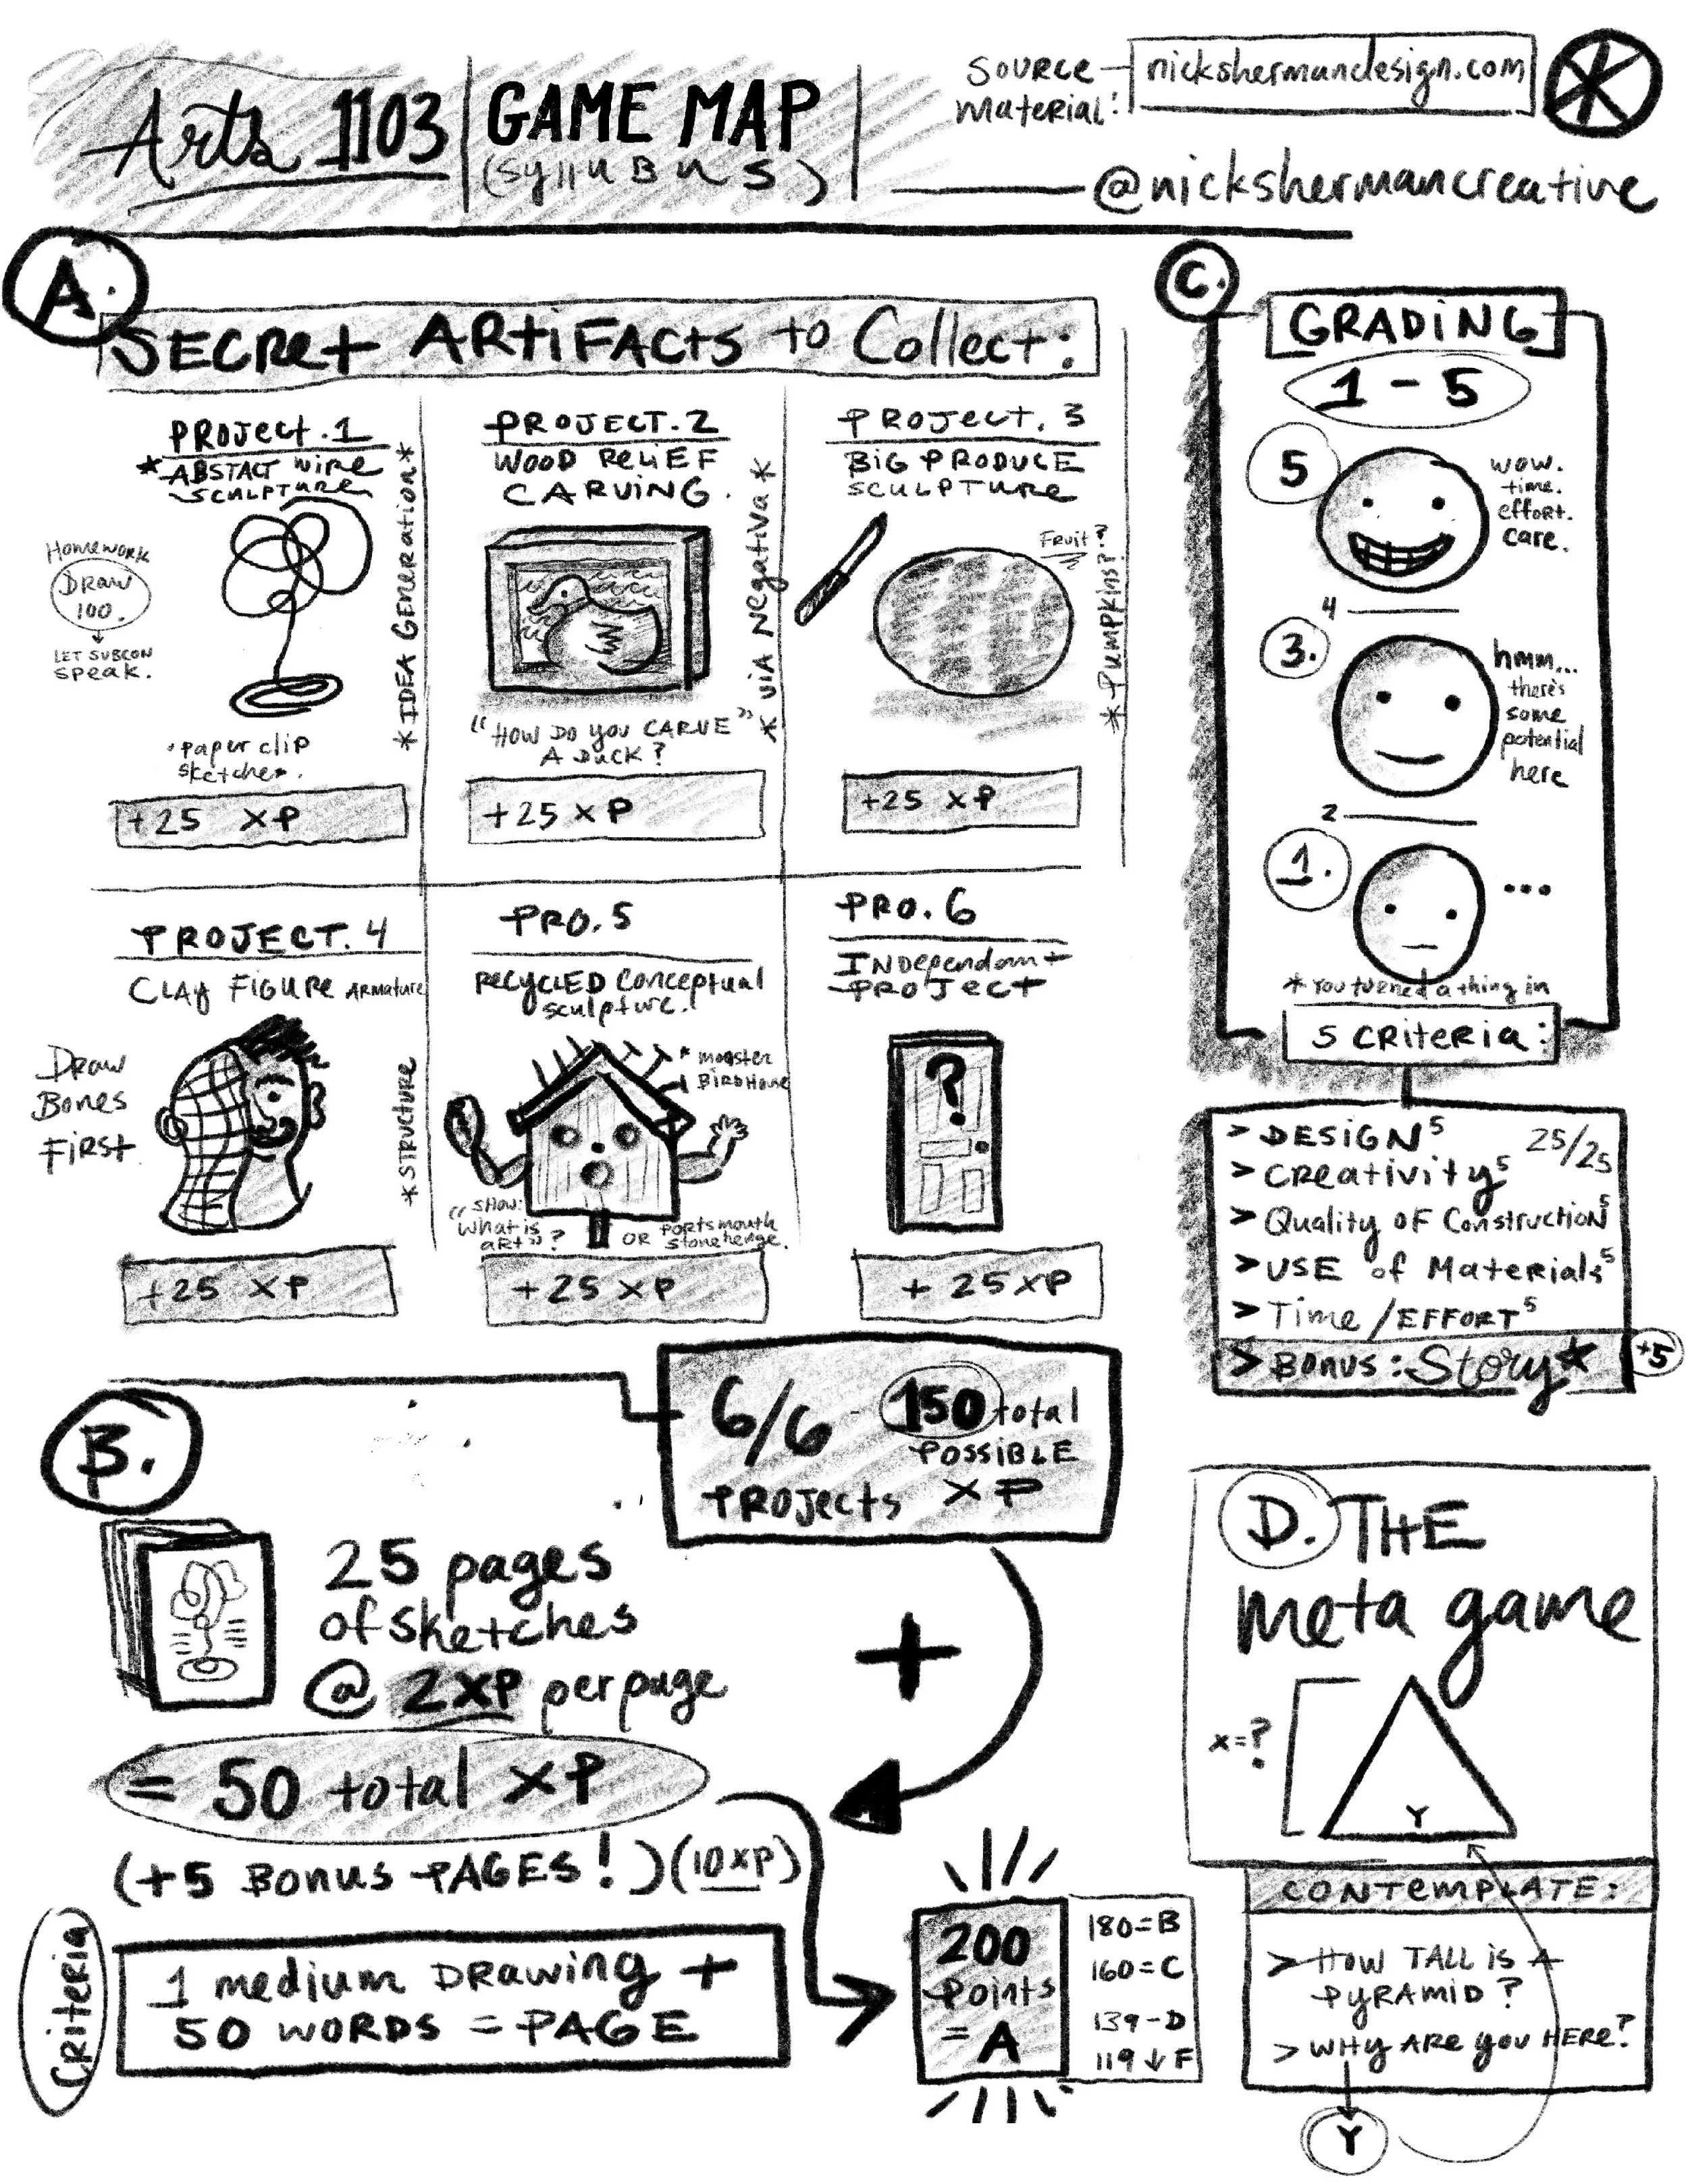 Arts 1103
GAME MAP
(SYllUBUS)
Source
Material:
nickshermandesign.com
@nickshermancreative
A.
SECRet ARtiFActs to Collect:
PROJect.1
*ABSTACT WIRE
SCULPTURE
Homework
DRAW
100.
LET SUBCON
SPEAK.
*IDEA GENERATION*
•Paper clip
sketches.
+25 XP
PROJECT.2
WOOD ReLiEF
CARVING.
*VIA Negativa*
"HOW DO YOU CARVE"
A DUCK?
+25 XP
PROJect.3
BIG PRODUCE
SCULPTURE
FRUIT?
*Pumpkins??
+25 XP
PROJECT.4
CLAY FIGURE ARMATURE
DRAW
BONES
FIRST
*STRUCTURE
+25 XP
PRO.5
RECYCLED Conceptual
Sculpture.
* MONSTER
BIRDHOUSE
SHOW:
"What is
ART"?
OR PORTSMOUTH
Stonehenge.
+25 XP
PRO.6
INDependant
PROJECT
?
+ 25 XP
6/6 - 150 total
POSSIBLE
PROJects XP
B.
25 pages
of sketches
@ 2XP per page
= 50 total XP
(+5 BONUS PAGES!) (10XP)
Criteria
1 medium DRAWING +
50 WORDS = PAGE
+
200
Points
= A
180=B
160=C
139-D
119↓F
C.
GRADING
1-5
5
wow.
time.
effort.
care.
4
3.
hmm...
there's
some
potential
here
2
1.
...
*You turned a thing in
5 CRiteria:
> DESIGN 5
25/25
> CReativity 5
> Quality OF Construction 5
> USE of Materials 5
> Time/EFFORT 5
> BONUS: Story★
+5
D. THE
Meta game
x=?
Y
CONTEMPLATE:
> HOW TALL IS A
PYRAMID?
> WHY ARE YOU HERE?
Y